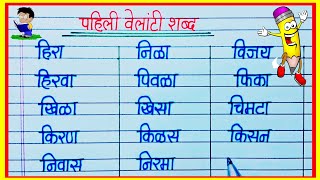 पहिली वेलांटी शब्द
हिरा निळा विजय
हिरवा पिवळा फिका
खिळा खिसा चिमटा
किरण किळस किसन
निवास निरमा